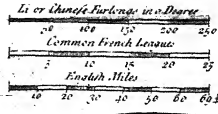 Li or Chinese Furlongs in a Degree
50 100 150 200 250
Common French Leagues
5 10 15 20 25
English Miles
10 20 30 40 50 60